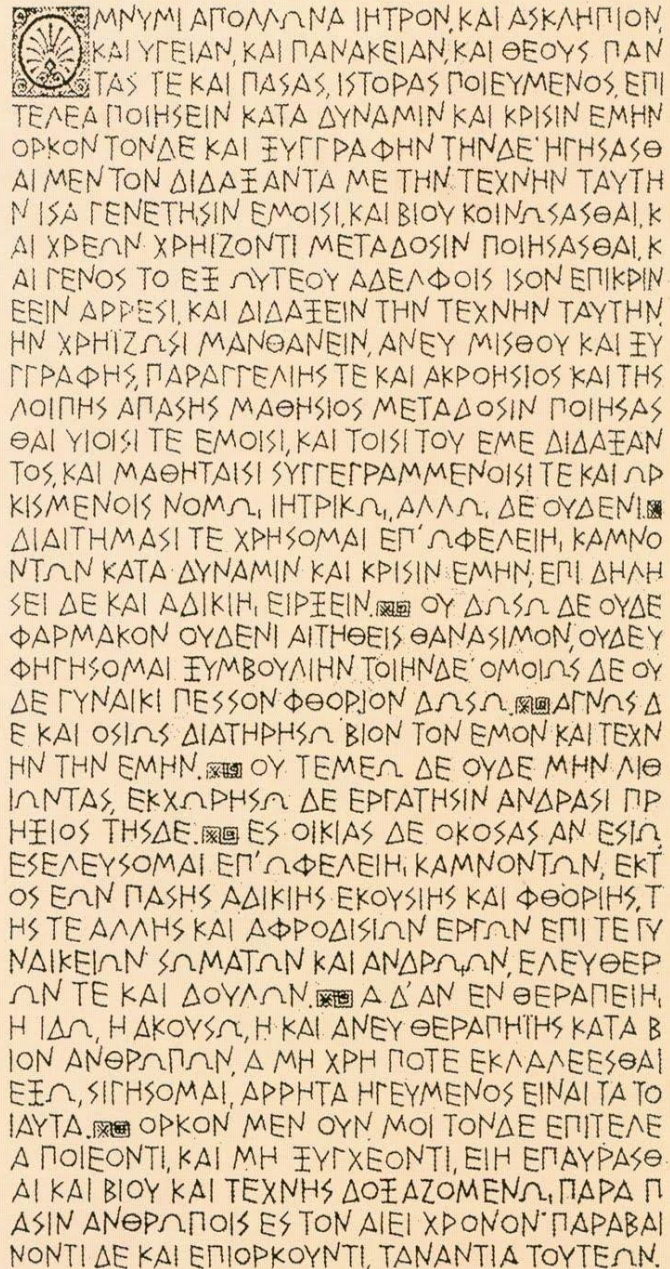 ΟΜΝΥΜΙ ΑΠΟΛΛΩΝΑ ΙΗΤΡΟΝ, ΚΑΙ ΑΣΚΛΗΠΙΟΝ,
ΚΑΙ ΥΓΕΙΑΝ, ΚΑΙ ΠΑΝΑΚΕΙΑΝ, ΚΑΙ ΘΕΟΥΣ ΠΑΝ
ΤΑΣ ΤΕ ΚΑΙ ΠΑΣΑΣ, ΙΣΤΟΡΑΣ ΠΟΙΕΥΜΕΝΟΣ, ΕΠΙ
ΤΕΛΕΑ ΠΟΙΗΣΕΙΝ ΚΑΤΑ ΔΥΝΑΜΙΝ ΚΑΙ ΚΡΙΣΙΝ ΕΜΗΝ
ΟΡΚΟΝ ΤΟΝΔΕ ΚΑΙ ΞΥΓΓΡΑΦΗΝ ΤΗΝΔΕ· ΗΓΗΣΑΣΘ
ΑΙ ΜΕΝ ΤΟΝ ΔΙΔΑΞΑΝΤΑ ΜΕ ΤΗΝ ΤΕΧΝΗΝ ΤΑΥΤΗ
Ν ΙΣΑ ΓΕΝΕΤΗΣΙΝ ΕΜΟΙΣΙ, ΚΑΙ ΒΙΟΥ ΚΟΙΝΩΣΑΣΘΑΙ, Κ
ΑΙ ΧΡΕΩΝ ΧΡΗΙΖΟΝΤΙ ΜΕΤΑΔΟΣΙΝ ΠΟΙΗΣΑΣΘΑΙ, Κ
ΑΙ ΓΕΝΟΣ ΤΟ ΕΞ ΩΥΤΕΟΥ ΑΔΕΛΦΟΙΣ ΙΣΟΝ ΕΠΙΚΡΙΝ
ΕΕΙΝ ΑΡΡΕΣΙ, ΚΑΙ ΔΙΔΑΞΕΙΝ ΤΗΝ ΤΕΧΝΗΝ ΤΑΥΤΗΝ,
ΗΝ ΧΡΗΪΖΩΣΙ ΜΑΝΘΑΝΕΙΝ, ΑΝΕΥ ΜΙΣΘΟΥ ΚΑΙ ΞΥ
ΓΓΡΑΦΗΣ, ΠΑΡΑΓΓΕΛΙΗΣ ΤΕ ΚΑΙ ΑΚΡΟΗΣΙΟΣ ΚΑΙ ΤΗΣ
ΛΟΙΠΗΣ ΑΠΑΣΗΣ ΜΑΘΗΣΙΟΣ ΜΕΤΑΔΟΣΙΝ ΠΟΙΗΣΑΣ
ΘΑΙ ΥΙΟΙΣΙ ΤΕ ΕΜΟΙΣΙ, ΚΑΙ ΤΟΙΣΙ ΤΟΥ ΕΜΕ ΔΙΔΑΞΑΝ
ΤΟΣ, ΚΑΙ ΜΑΘΗΤΑΙΣΙ ΣΥΓΓΕΓΡΑΜΜΕΝΟΙΣΙ ΤΕ ΚΑΙ ΩΡ
ΚΙΣΜΕΝΟΙΣ ΝΟΜΩι ΙΗΤΡΙΚΩι, ΑΛΛΩι ΔΕ ΟΥΔΕΝΙ.
ΔΙΑΙΤΗΜΑΣΙ ΤΕ ΧΡΗΣΟΜΑΙ ΕΠ' ΩΦΕΛΕΙΗι ΚΑΜΝΟ
ΝΤΩΝ ΚΑΤΑ ΔΥΝΑΜΙΝ ΚΑΙ ΚΡΙΣΙΝ ΕΜΗΝ, ΕΠΙ ΔΗΛΗ
ΣΕΙ ΔΕ ΚΑΙ ΑΔΙΚΙΗι ΕΙΡΞΕΙΝ. ΟΥ ΔΩΣΩ ΔΕ ΟΥΔΕ
ΦΑΡΜΑΚΟΝ ΟΥΔΕΝΙ ΑΙΤΗΘΕΙΣ ΘΑΝΑΣΙΜΟΝ, ΟΥΔΕ Υ
ΦΗΓΗΣΟΜΑΙ ΞΥΜΒΟΥΛΙΗΝ ΤΟΙΗΝΔΕ· ΟΜΟΙΩΣ ΔΕ ΟΥ
ΔΕ ΓΥΝΑΙΚΙ ΠΕΣΣΟΝ ΦΘΟΡΙΟΝ ΔΩΣΩ. ΑΓΝΩΣ Δ
Ε ΚΑΙ ΟΣΙΩΣ ΔΙΑΤΗΡΗΣΩ ΒΙΟΝ ΤΟΝ ΕΜΟΝ ΚΑΙ ΤΕΧΝ
ΗΝ ΤΗΝ ΕΜΗΝ. ΟΥ ΤΕΜΕΩ ΔΕ ΟΥΔΕ ΜΗΝ ΛΙΘ
ΙΩΝΤΑΣ, ΕΚΧΩΡΗΣΩ ΔΕ ΕΡΓΑΤΗΣΙΝ ΑΝΔΡΑΣΙ ΠΡ
ΗΞΙΟΣ ΤΗΣΔΕ. ΕΣ ΟΙΚΙΑΣ ΔΕ ΟΚΟΣΑΣ ΑΝ ΕΣΙΩ,
ΕΣΕΛΕΥΣΟΜΑΙ ΕΠ' ΩΦΕΛΕΙΗι ΚΑΜΝΟΝΤΩΝ, ΕΚΤ
ΟΣ ΕΩΝ ΠΑΣΗΣ ΑΔΙΚΙΗΣ ΕΚΟΥΣΙΗΣ ΚΑΙ ΦΘΟΡΙΗΣ, Τ
ΗΣ ΤΕ ΑΛΛΗΣ ΚΑΙ ΑΦΡΟΔΙΣΙΩΝ ΕΡΓΩΝ ΕΠΙ ΤΕ ΓΥ
ΝΑΙΚΕΙΩΝ ΣΩΜΑΤΩΝ ΚΑΙ ΑΝΔΡΩιΩΝ, ΕΛΕΥΘΕΡ
ΩΝ ΤΕ ΚΑΙ ΔΟΥΛΩΝ. Α Δ' ΑΝ ΕΝ ΘΕΡΑΠΕΙΗι
Η ΙΔΩ, Η ΑΚΟΥΣΩ, Η ΚΑΙ ΑΝΕΥ ΘΕΡΑΠΗΪΗΣ ΚΑΤΑ Β
ΙΟΝ ΑΝΘΡΩΠΩΝ, Α ΜΗ ΧΡΗ ΠΟΤΕ ΕΚΛΑΛΕΕΣΘΑΙ
ΕΞΩ, ΣΙΓΗΣΟΜΑΙ, ΑΡΡΗΤΑ ΗΓΕΥΜΕΝΟΣ ΕΙΝΑΙ ΤΑ ΤΟ
ΙΑΥΤΑ. ΟΡΚΟΝ ΜΕΝ ΟΥΝ ΜΟΙ ΤΟΝΔΕ ΕΠΙΤΕΛΕ
Α ΠΟΙΕΟΝΤΙ, ΚΑΙ ΜΗ ΞΥΓΧΕΟΝΤΙ, ΕΙΗ ΕΠΑΥΡΑΣΘ
ΑΙ ΚΑΙ ΒΙΟΥ ΚΑΙ ΤΕΧΝΗΣ ΔΟΞΑΖΟΜΕΝΩι ΠΑΡΑ Π
ΑΣΙΝ ΑΝΘΡΩΠΟΙΣ ΕΣ ΤΟΝ ΑΙΕΙ ΧΡΟΝΟΝ· ΠΑΡΑΒΑΙ
ΝΟΝΤΙ ΔΕ ΚΑΙ ΕΠΙΟΡΚΟΥΝΤΙ, ΤΑΝΑΝΤΙΑ ΤΟΥΤΕΩΝ.